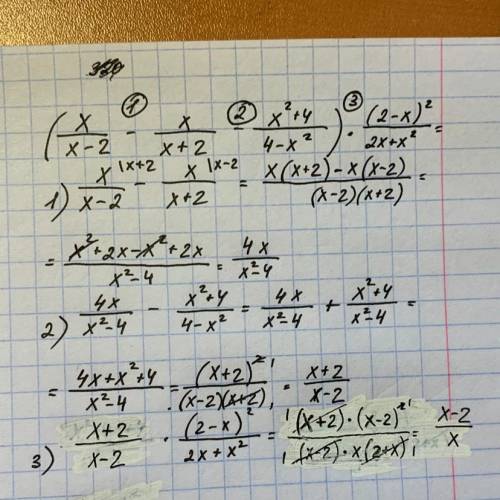 (x/(x-2) - x/(x+2) - (x²+4)/(4-x²)) · (2-x)²/(2x+x²) =
① ② ③
1) x/(x-2) |x+2 - x/(x+2) |x-2 = (x(x+2)-x(x-2))/((x-2)(x+2)) =
= (x²+2x-x²+2x)/(x²-4) = 4x/(x²-4)
2) 4x/(x²-4) - (x²+4)/(4-x²) = 4x/(x²-4) + (x²+4)/(x²-4) =
= (4x+x²+4)/(x²-4) = (x+2)²/((x-2)(x+2)) = (x+2)/(x-2)
3) (x+2)/(x-2) · (2-x)²/(2x+x²) = ((x+2)·(x-2)²)/((x-2)·x(2+x)) = (x-2)/x